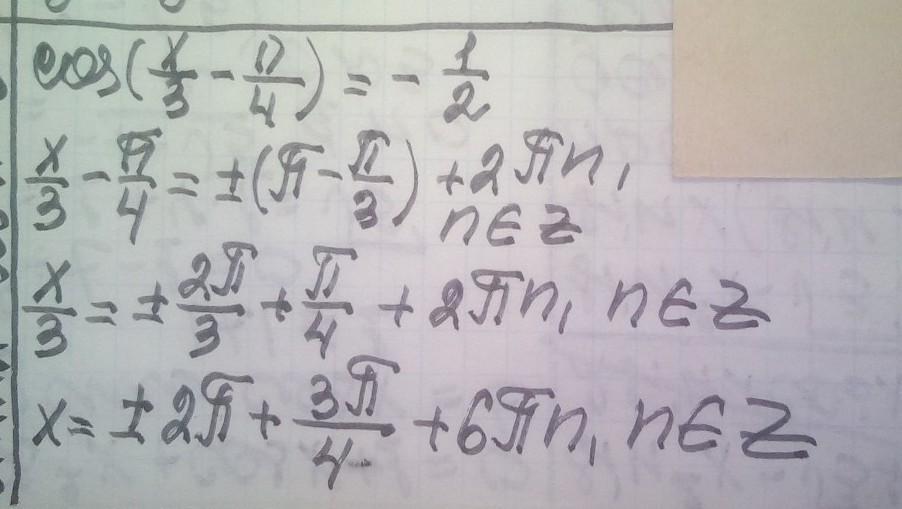 cos(x/3 - π/4) = - 1/2
x/3 - π/4 = ±(π - π/3) + 2πn,
n∈Z
x/3 = ± 2π/3 + π/4 + 2πn, n∈Z
x = ± 2π + 3π/4 + 6πn, n∈Z